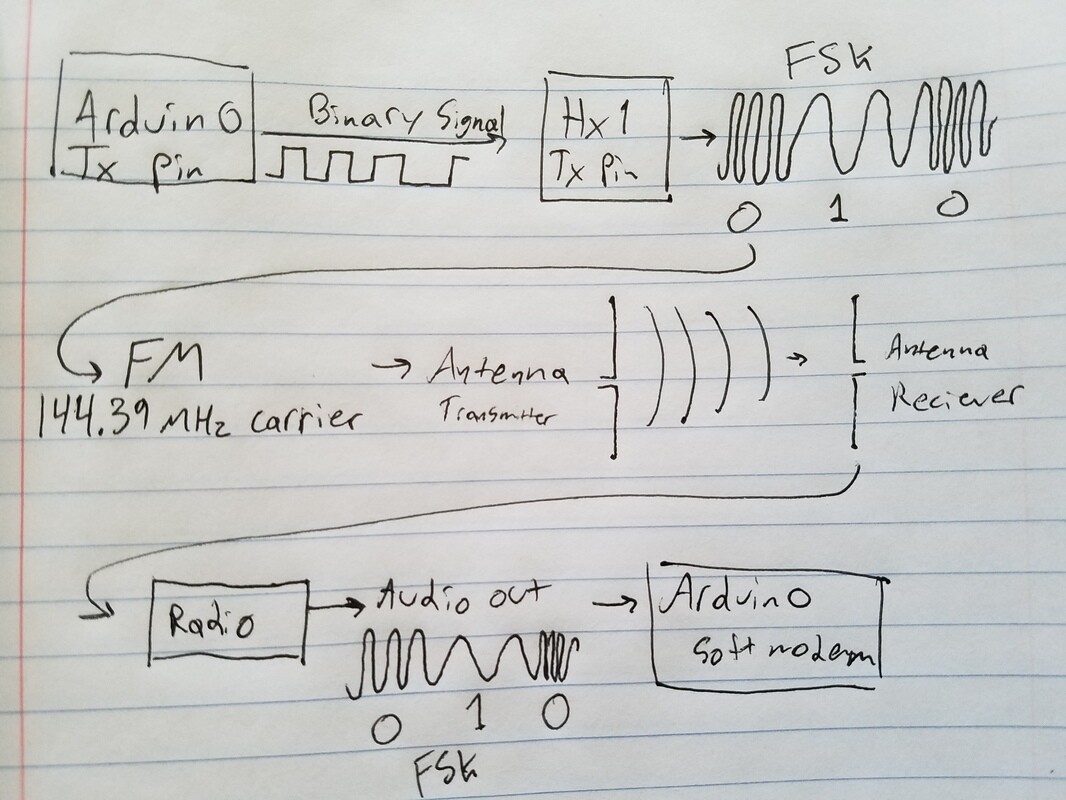 FSK
Arduino
Tx pin
Binary Signal
Hx1
Tx pin
0 1 0
FM
144.39 MHz carrier
Antenna
Transmitter
Antenna
Reciever
Radio
Audio out
0 1 0
FSK
Arduino
Soft modem